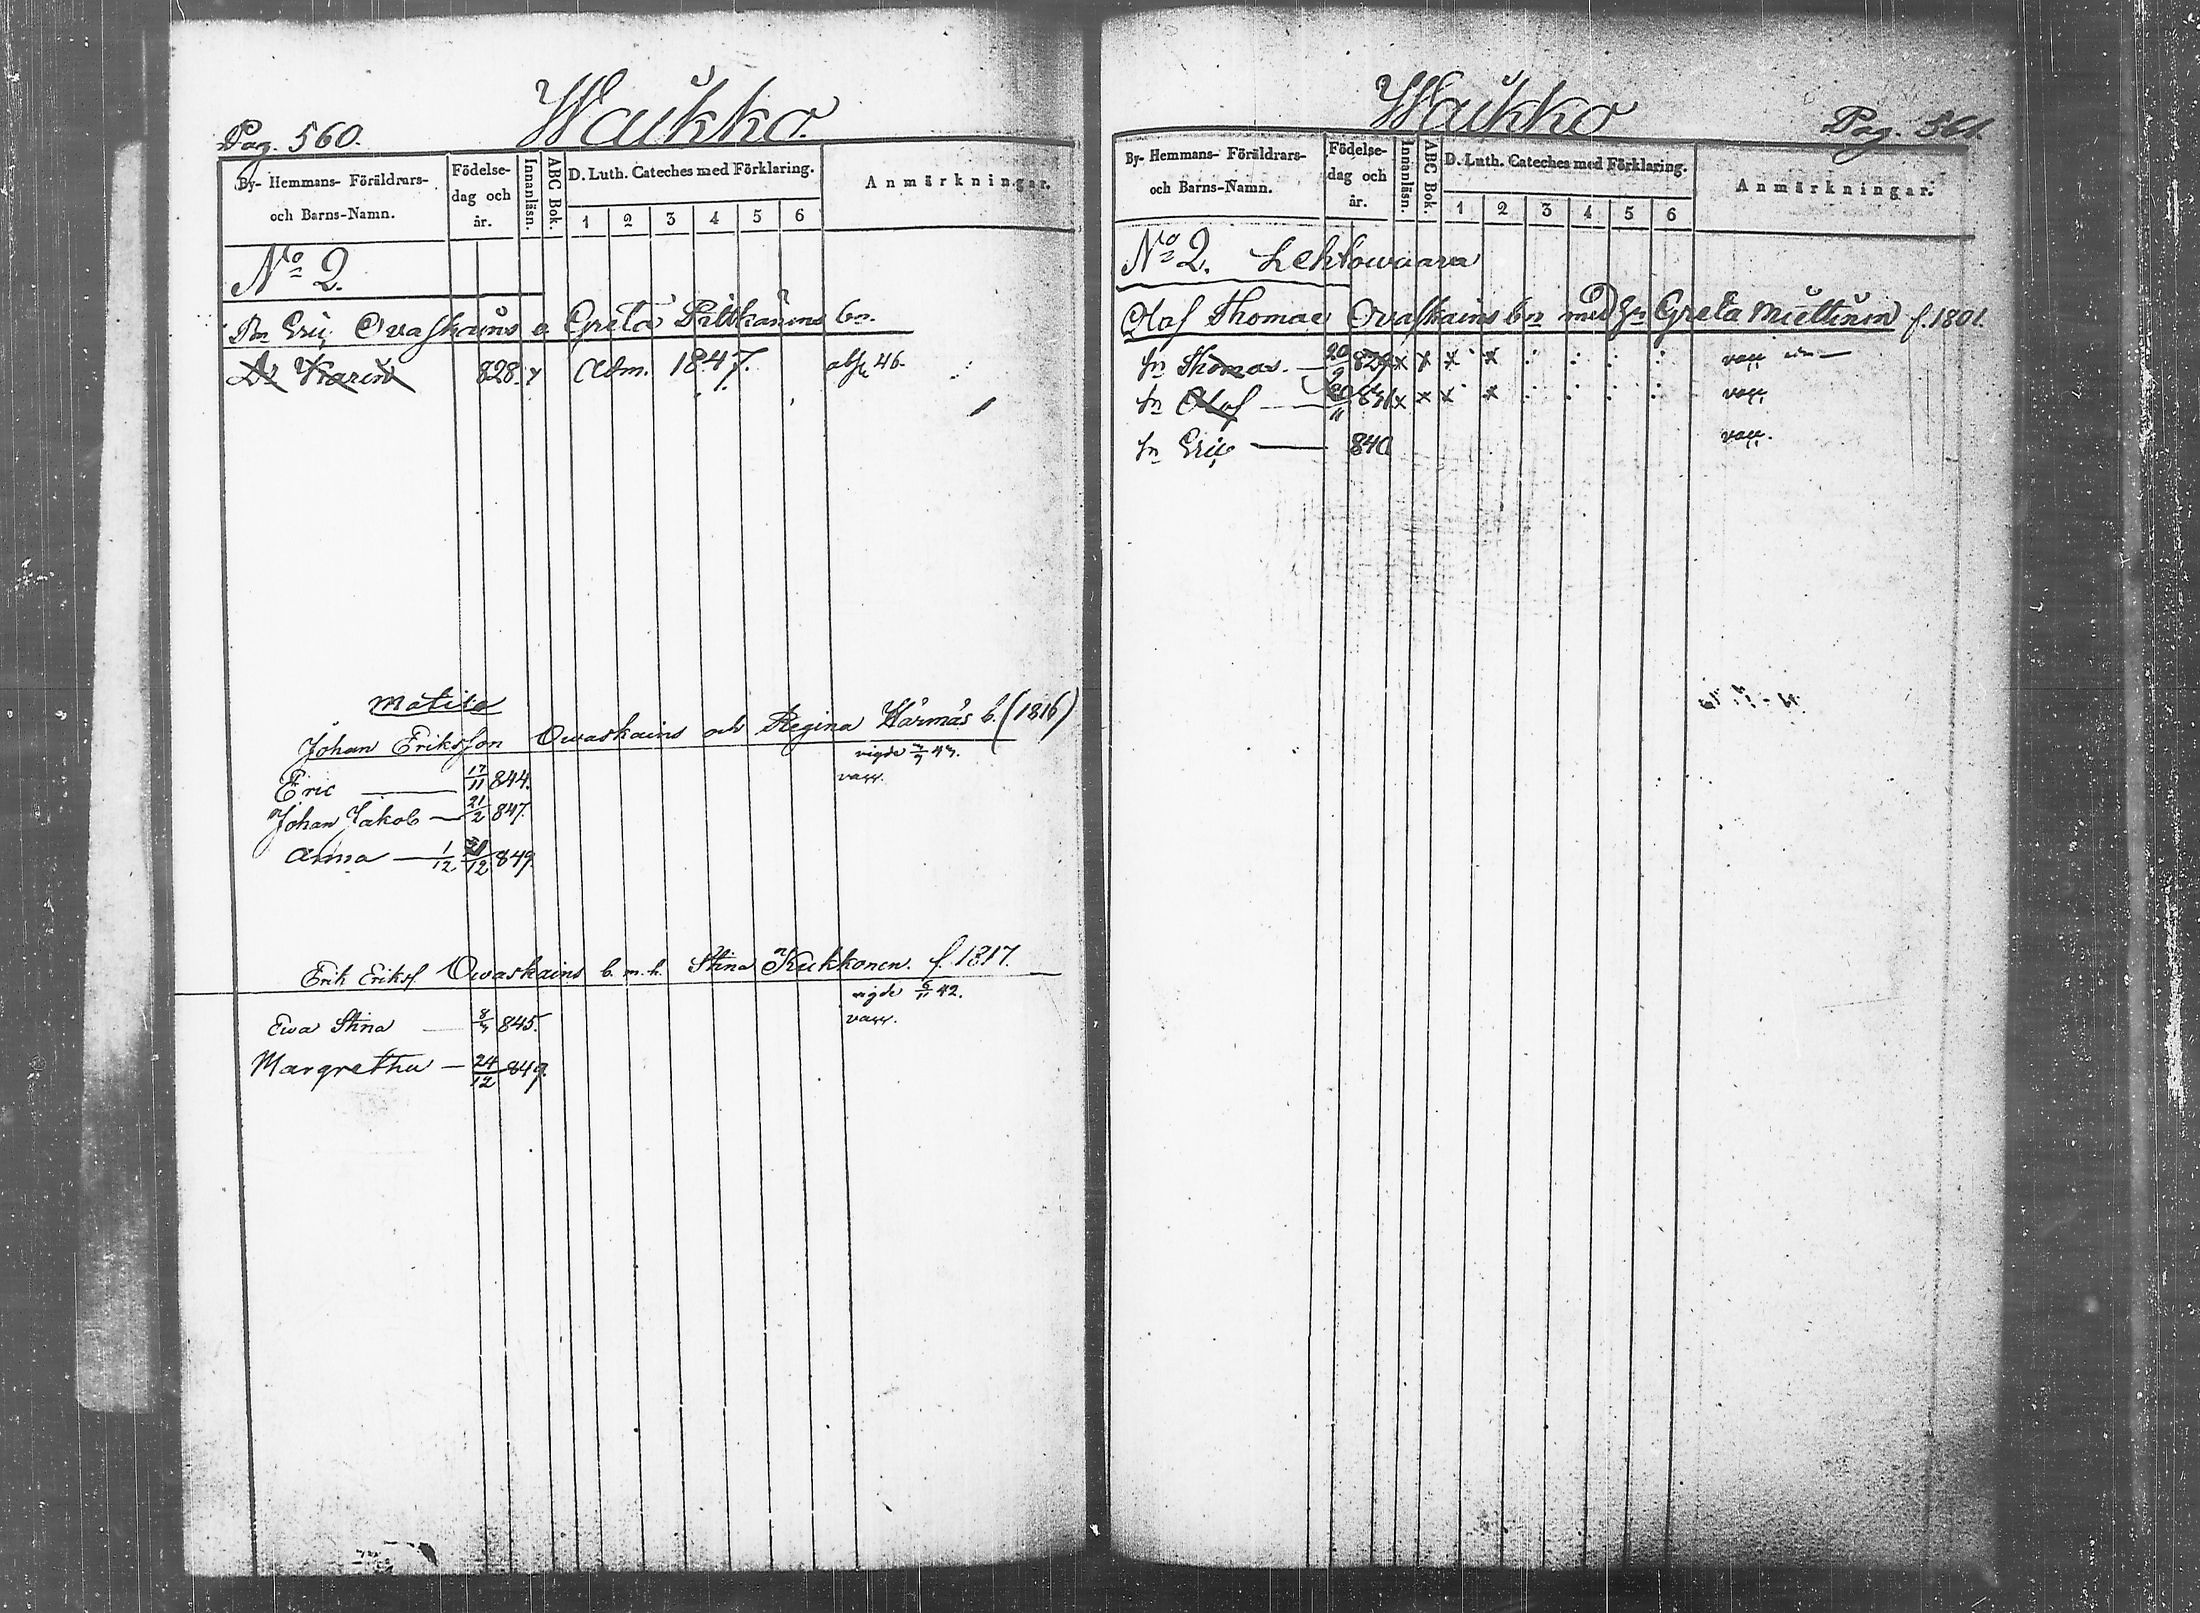 Waikko.
Pag. 560.
By- Hemmans- Föräldrars- och Barns-Namn.
Födelse- dag och år.
Innanläsn.
ABC Bok.
D. Luth. Cateches med Förklaring.
1 2 3 4 5 6
Anmärkningar.
No 2.
Eric Ovaskains o Greta Pitkänens bn.
Dr Karin 828. x Adm. 1847. 46.
Matila
Johan Eriksson Owaskains och Regina Härmäs b. (1816)
vigde 47.
Eric — 17/11 844. vacc.
Johan Jakob — 21/2 847.
Anna — 1/12 12 849.
Erik Eriks. Owaskains b. m. h. Stina Kukkonen. f. 1817.
vigde 6/11 42.
Ewa Stina — 845. vacc.
Margretha — 24/12 849.
Waikko
Pag. 561.
By- Hemmans- Föräldrars- och Barns-Namn.
Födelse- dag och år.
Innanläsn.
ABC Bok.
D. Luth. Cateches med Förklaring.
1 2 3 4 5 6
Anmärkningar.
No 2. Lehtowaara
Olof Thomae Ovaskains bn med hu Greta Miettinin f. 1801.
sn Thomas. — 829 x x x x : : : : vacc
sn Olof — 20/11 x x x x : : : : vacc
sn Eric — 840 vacc.